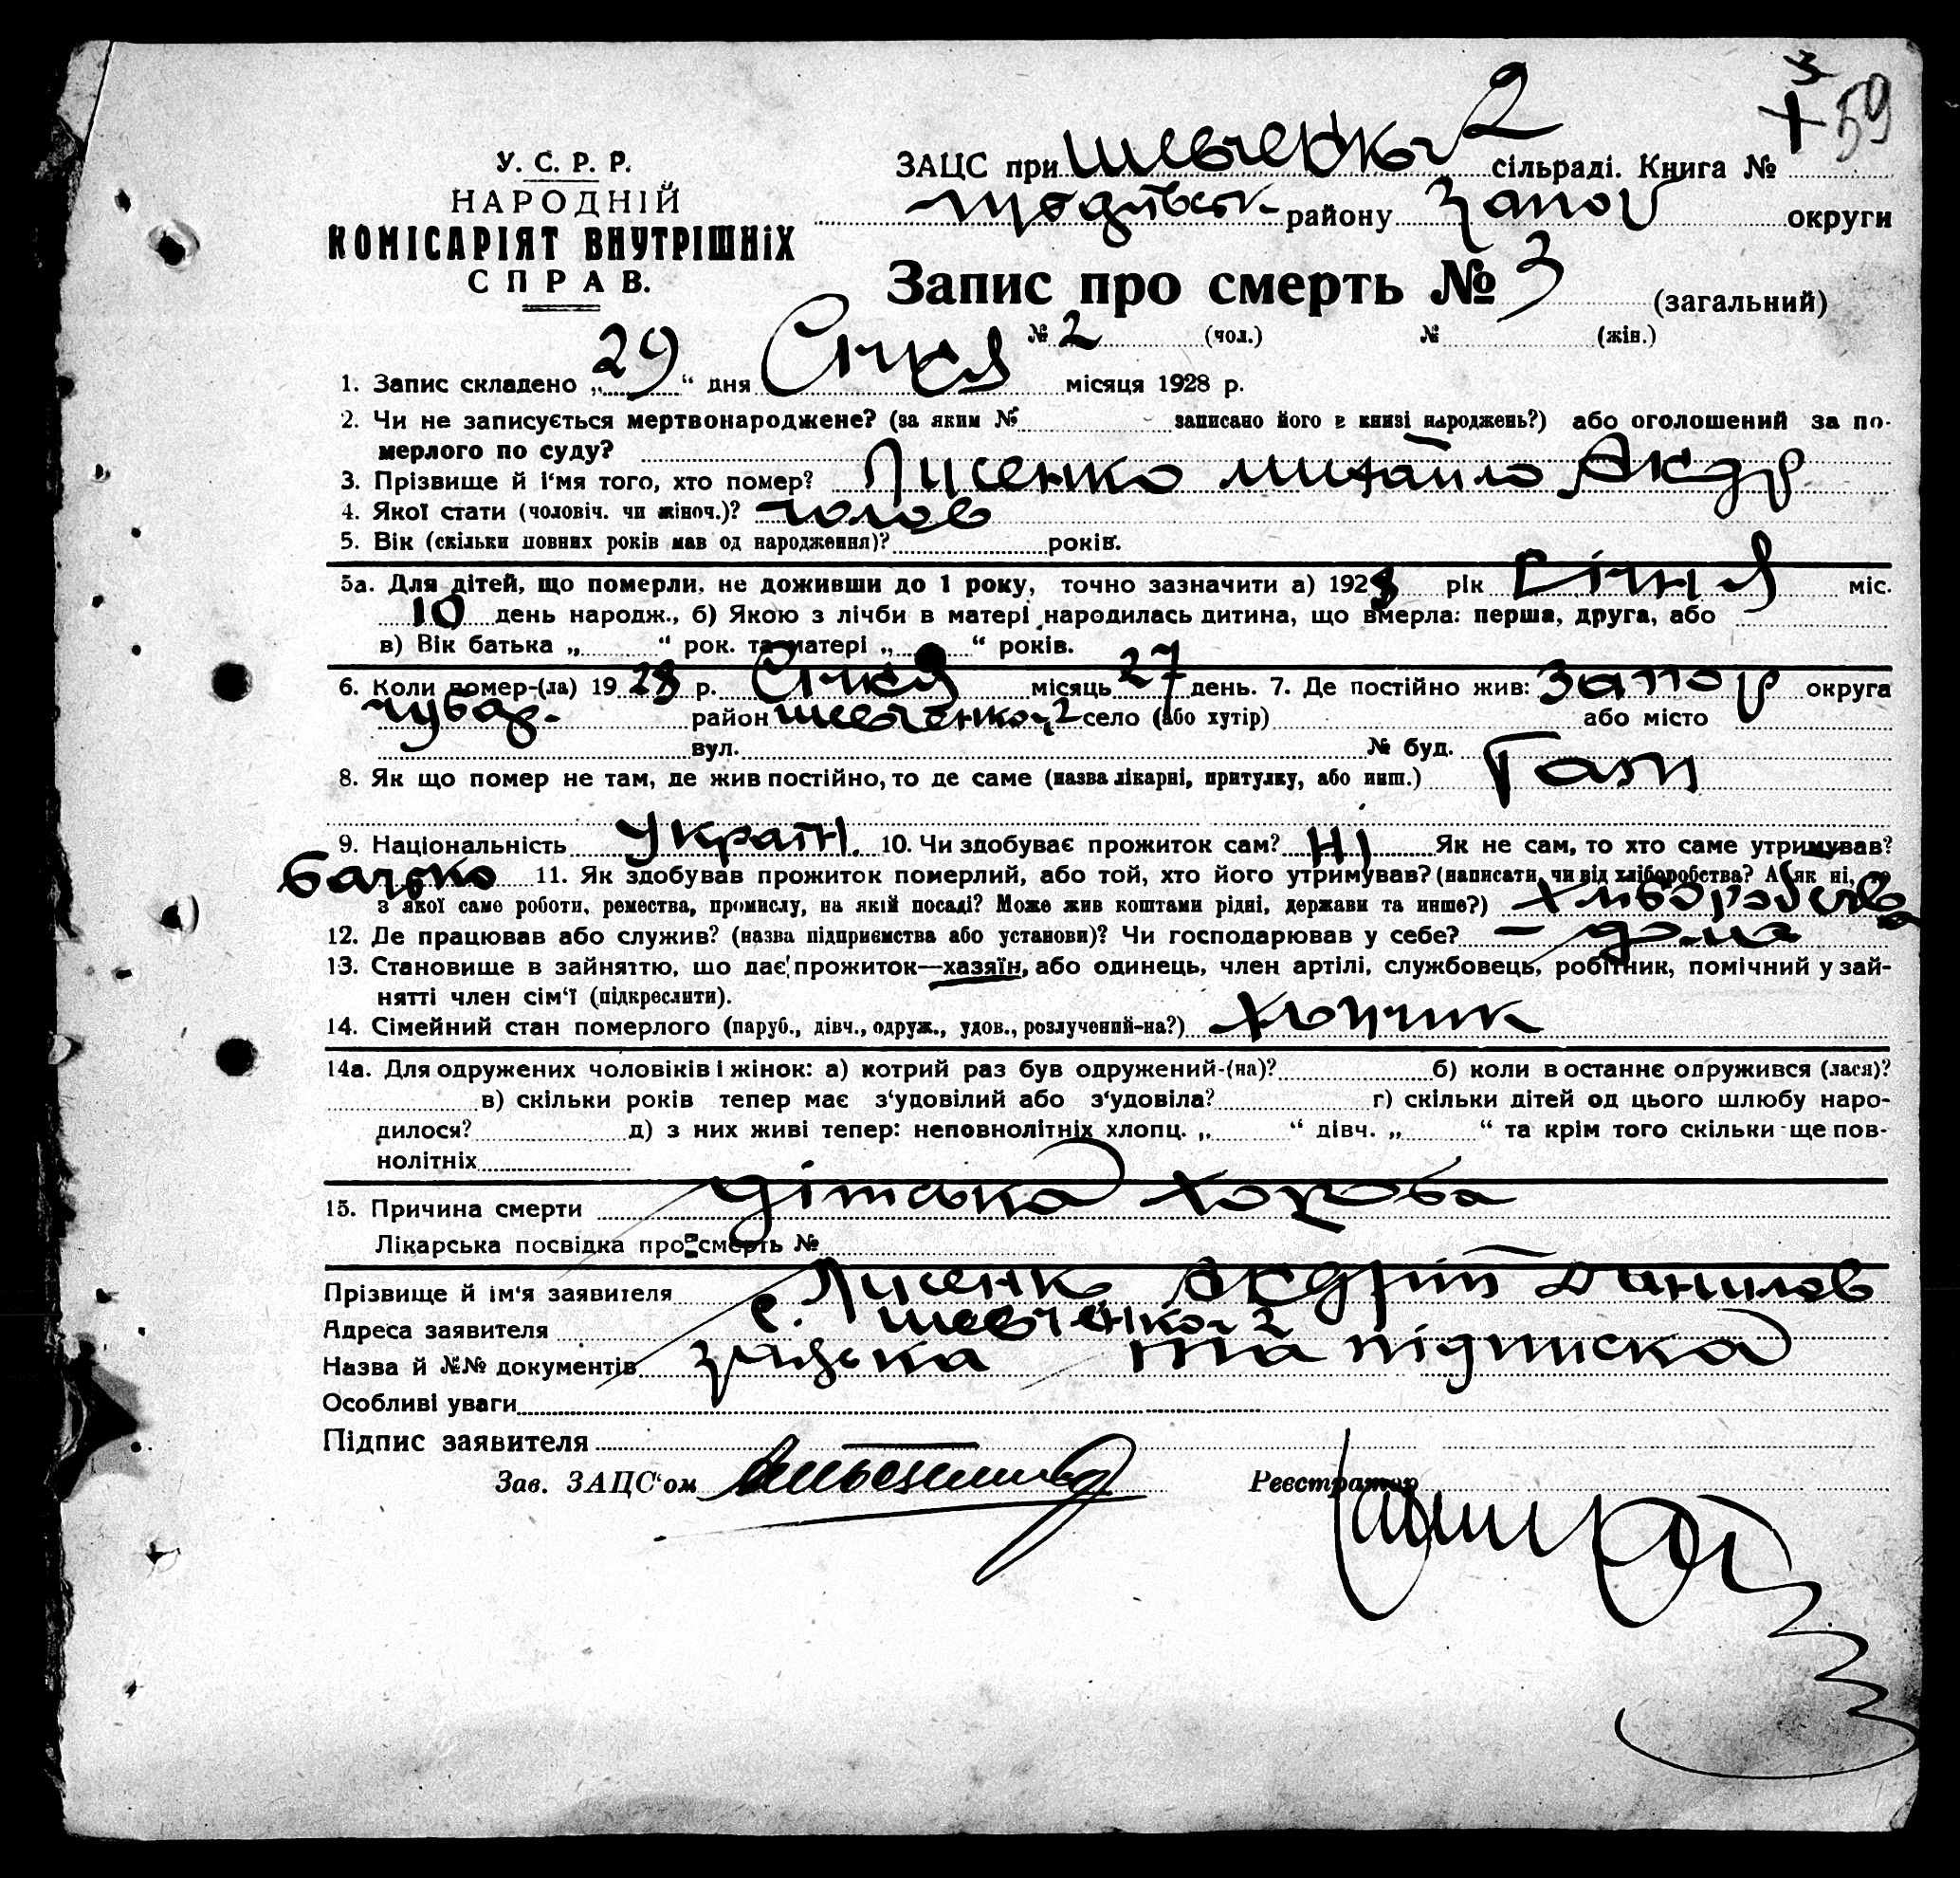 3
+ 59
У. С. Р. Р.
НАРОДНІЙ
КОМІСАРІЯТ ВНУТРІШНІХ
СПРАВ.
ЗАЦС при Шевченко 2 сільраді. Книга №
району Запор округи
Запис про смерть № 3 (загальний)
№ 2 (чол.) № (жін.)
1. Запис складено „29“ дня Січня місяця 1928 р.
2. Чи не записується мертвонароджене? (за яким № - записано його в книзі народжень?) або оголошений за по-
мерлого по суду?
3. Прізвище й і'мя того, хто помер? Лисенко Михайло Андр
4. Якої стати (чоловіч. чи жіноч.)? чолов
5. Вік (скільки повних років мав од народження)? років.
5а. Для дітей, що померли, не доживши до 1 року, точно зазначити а) 1928 рік Січня міс.
10 день народж., б) Якою з лічби в матері народилась дитина, що вмерла: перша, друга, або
в) Вік батька „ “ рок. та матері „ “ років.
6. Коли помер-(ла) 1928 р. Січня місяць 27 день. 7. Де постійно жив: Запор округа
район Шевченко 2 село (або хутір) або місто
вул. № буд.
8. Як що помер не там, де жив постійно, то де саме (назва лікарні, притулку, або инш.)
9. Національність Україн. 10. Чи здобуває прожиток сам? Ні Як не сам, то хто саме утримував?
батько 11. Як здобував прожиток померлий, або той, хто його утримував? (написати, чи від хліборобства? А як ні, то
з якої саме роботи, ремества, промислу, на якій посаді? Може жив коштами рідні, держави та инше?) хліборобства
12. Де працював або служив? (назва підприємства або установи)? Чи господарював у себе? – дома
13. Становище в зайняттю, що дає прожиток—хазяїн, або одинець, член артілі, службовець, робітник, помічний у зай-
нятті член сім'ї (підкреслити).
14. Сімейний стан померлого (паруб., дівч., одруж., удов., розлучений-на?) хлопчик
14а. Для одружених чоловіків і жінок: а) котрий раз був одружений-(на)? б) коли в останнє одружився (лася)?
в) скільки років тепер має з'удовілий або з'удовіла? г) скільки дітей од цього шлюбу наро-
дилося? д) з них живі тепер: неповнолітніх хлопц. „ “ дівч. „ “ та крім того скільки ще пов-
нолітніх
15. Причина смерти дітська хороба
Лікарська посвідка про смерть №
Прізвище й ім'я заявителя Лисенко Андрій Данилов
Адреса заявителя с. Шевченко 2
Назва й №№ документів та підписка
Особливі уваги
Підпис заявителя
Зав. ЗАЦС'ом Реєстратор